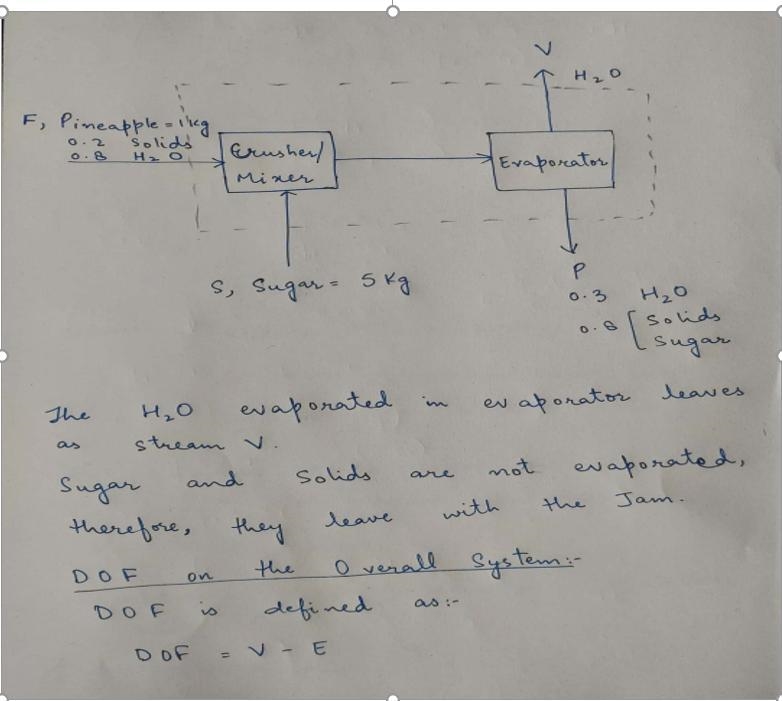 V
H2O
F, Pineapple = 1kg
0.2 Solids
0.8 H2O
Crusher/
Mixer
Evaporator
S, Sugar = 5 Kg
P
0.3 H2O
0.8 [ Solids
Sugar
The H2O evaporated in evaporator leaves
as stream V.
Sugar and Solids are not evaporated,
therefore, they leave with the Jam.
DOF on the Overall System:-
DOF is defined as:-
DOF = V - E